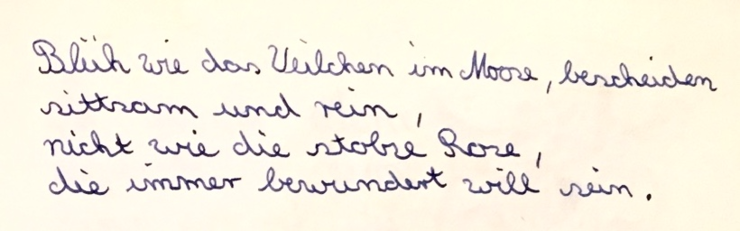 Blüh wie das Veilchen im Moose, bescheiden
sittsam und rein,
nicht wie die stolze Rose,
die immer bewundert will sein.